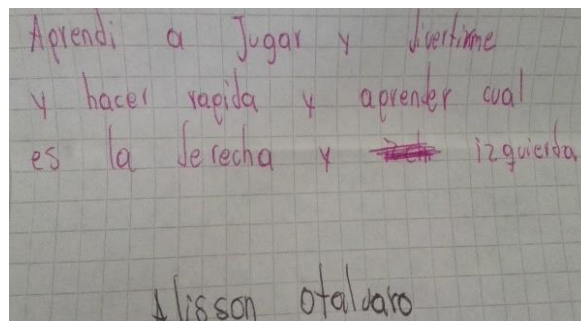 Aprendi a Jugar y divertirme
y hacer rapida y aprender cual
es la derecha y izquierda
Alisson otalvaro